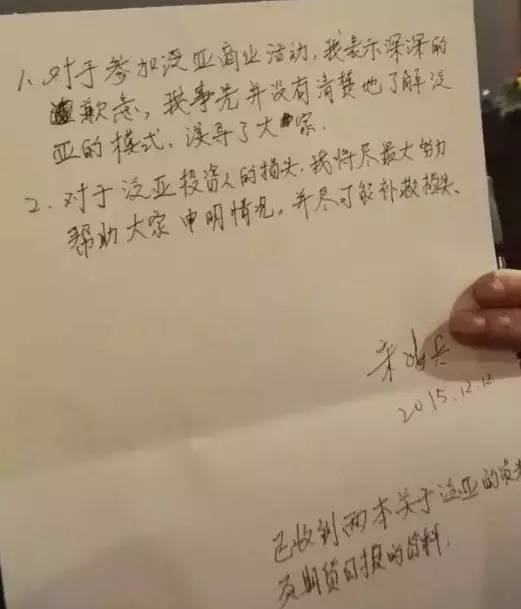 1. 对于参加泛亚商业活动,我表示深深的
歉意,我事先并没有清楚地了解泛
亚的模式,误导了大家.
2. 对于泛亚投资人的损失,我将尽最大努力
帮助大家申明情况,并尽可能补救损失、
宋鸿兵
2015.12.12
已收到两本关于泛亚的
及期货日报的资料.